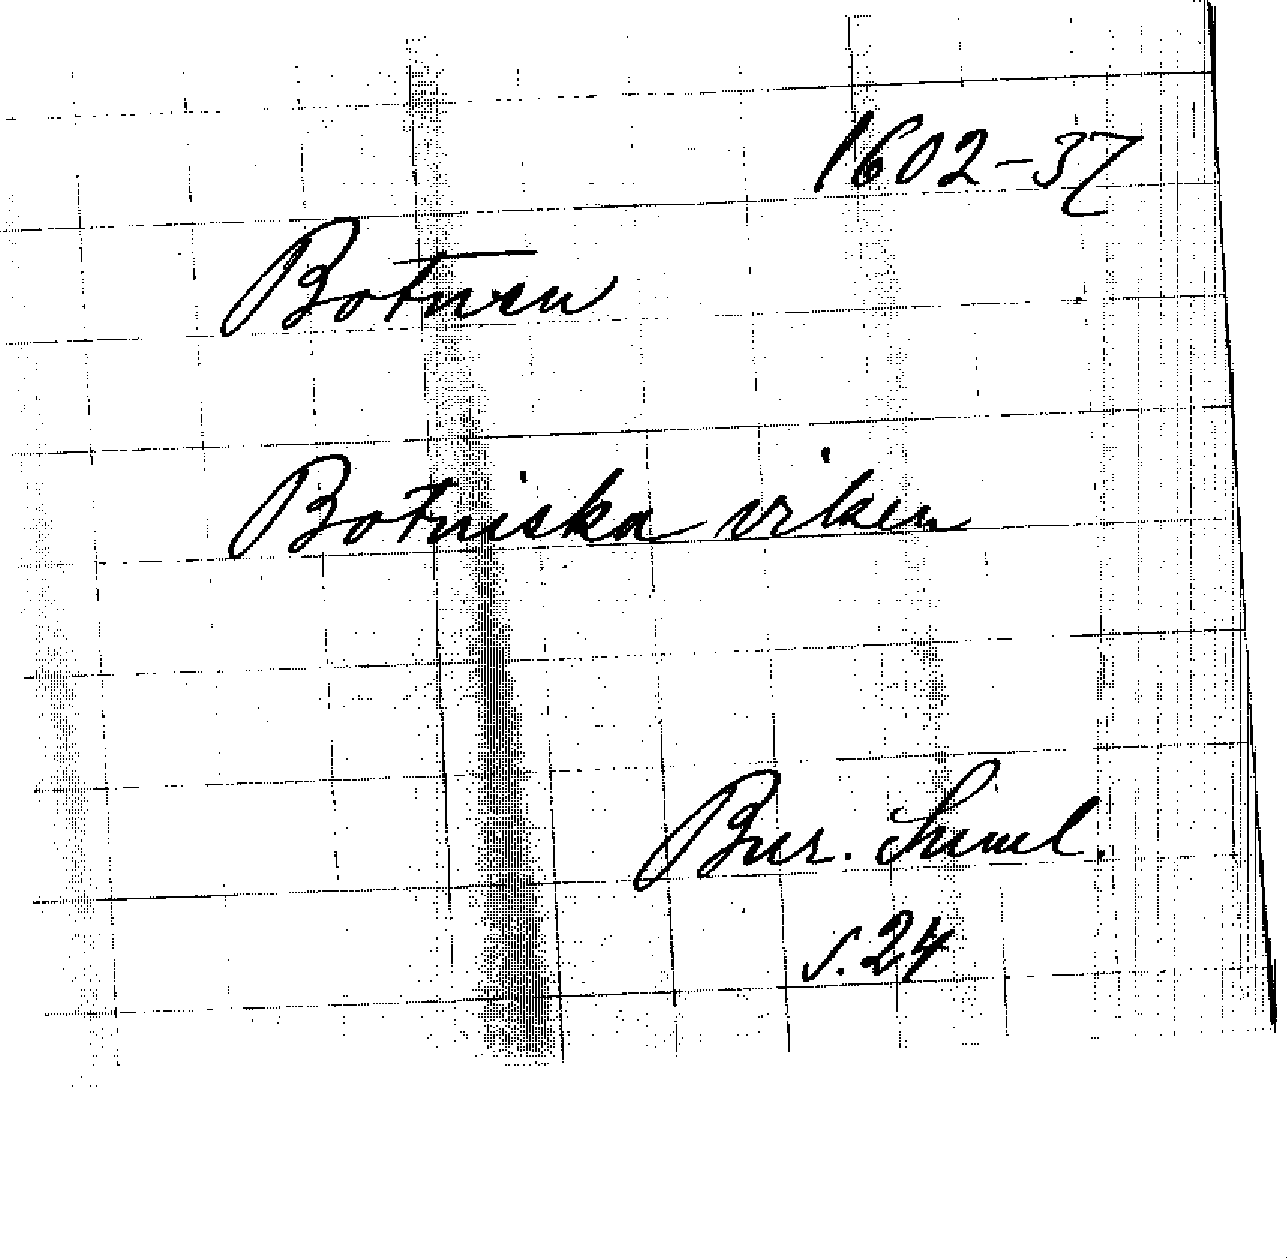 1602-37
Botnen
Botniska viken
Bur. Suml.
s. 24